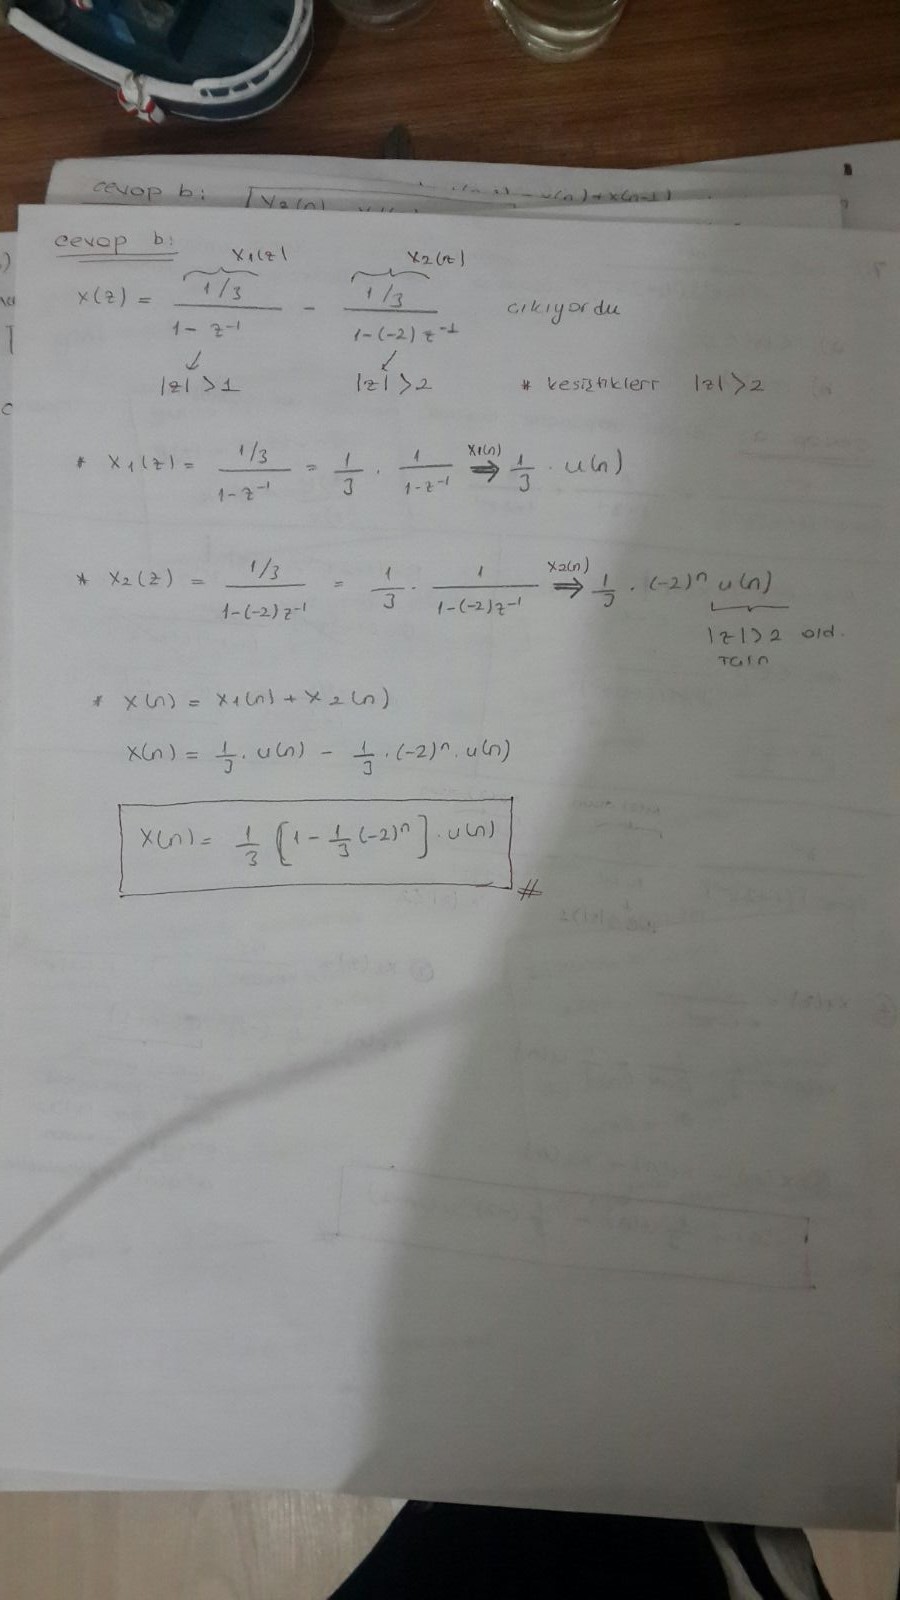 cevap b:
cevap b:
X1(z) X2(z)
X(z) = 1/3 / 1 - z^-1 - 1/3 / 1-(-2)z^-1 cıkıyordu
|z|>1 |z|>2 * kesiştikleri |z|>2
* X1(z) = 1/3 / 1-z^-1 = 1/3 . 1/1-z^-1 x1(n) ⇒ 1/3 . u(n)
* X2(z) = 1/3 / 1-(-2)z^-1 = 1/3 . 1/1-(-2)z^-1 x2(n) ⇒ 1/3 . (-2)^n u(n)
|z|>2 old.
için
* x(n) = x1(n) + x2(n)
x(n) = 1/3 . u(n) - 1/3 . (-2)^n . u(n)
x(n) = 1/3 [1 - 1/3 (-2)^n] . u(n)
#